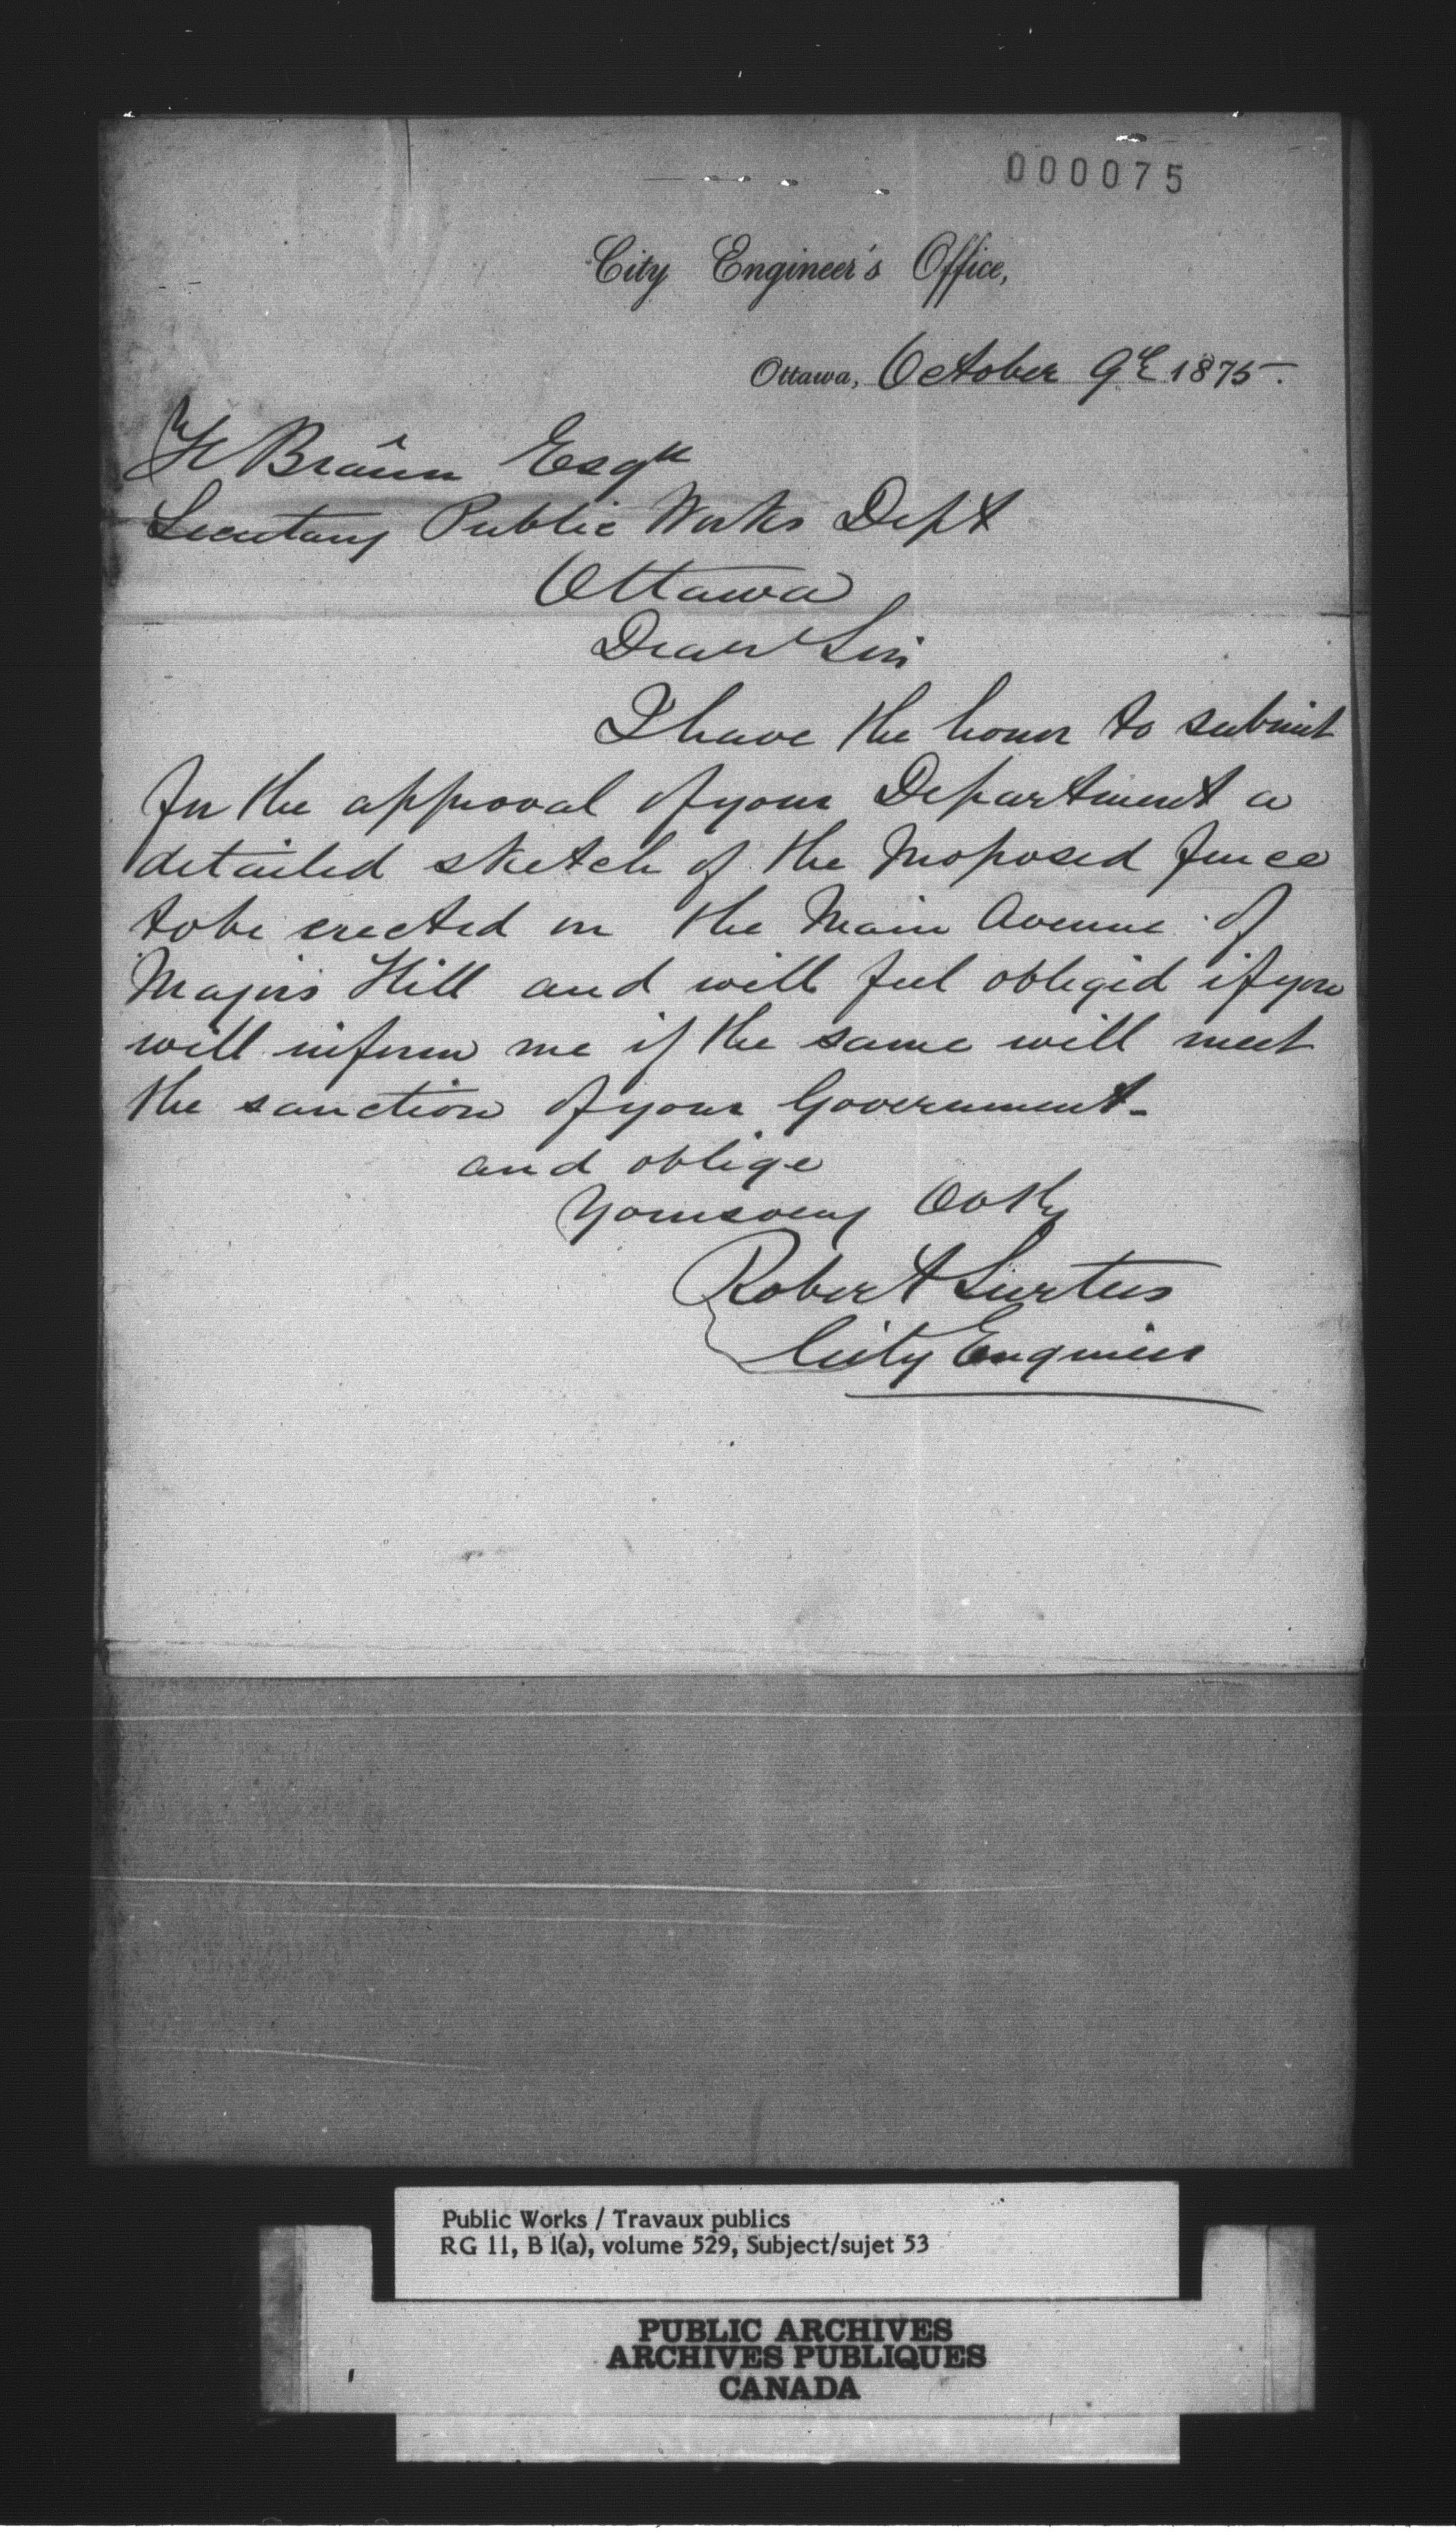 000075
City Engineer's Office,
Ottawa, October 9th 1875.
F Braun Esqr
Secretary Public Works Dept
Ottawa
Dear Sir
I have the honor to submit
for the approval of your Department a
detailed sketch of the proposed fence
to be erected on the Main Avenue of
Majors Hill and will feel obliged if you
will inform me if the same will meet
the sanction of your Government-
and oblige
Yours very
Robert Surtees
City Engineer
Public Works / Travaux publics
RG 11, B 1(a), volume 529, Subject/sujet 53
PUBLIC ARCHIVES
ARCHIVES PUBLIQUES
CANADA